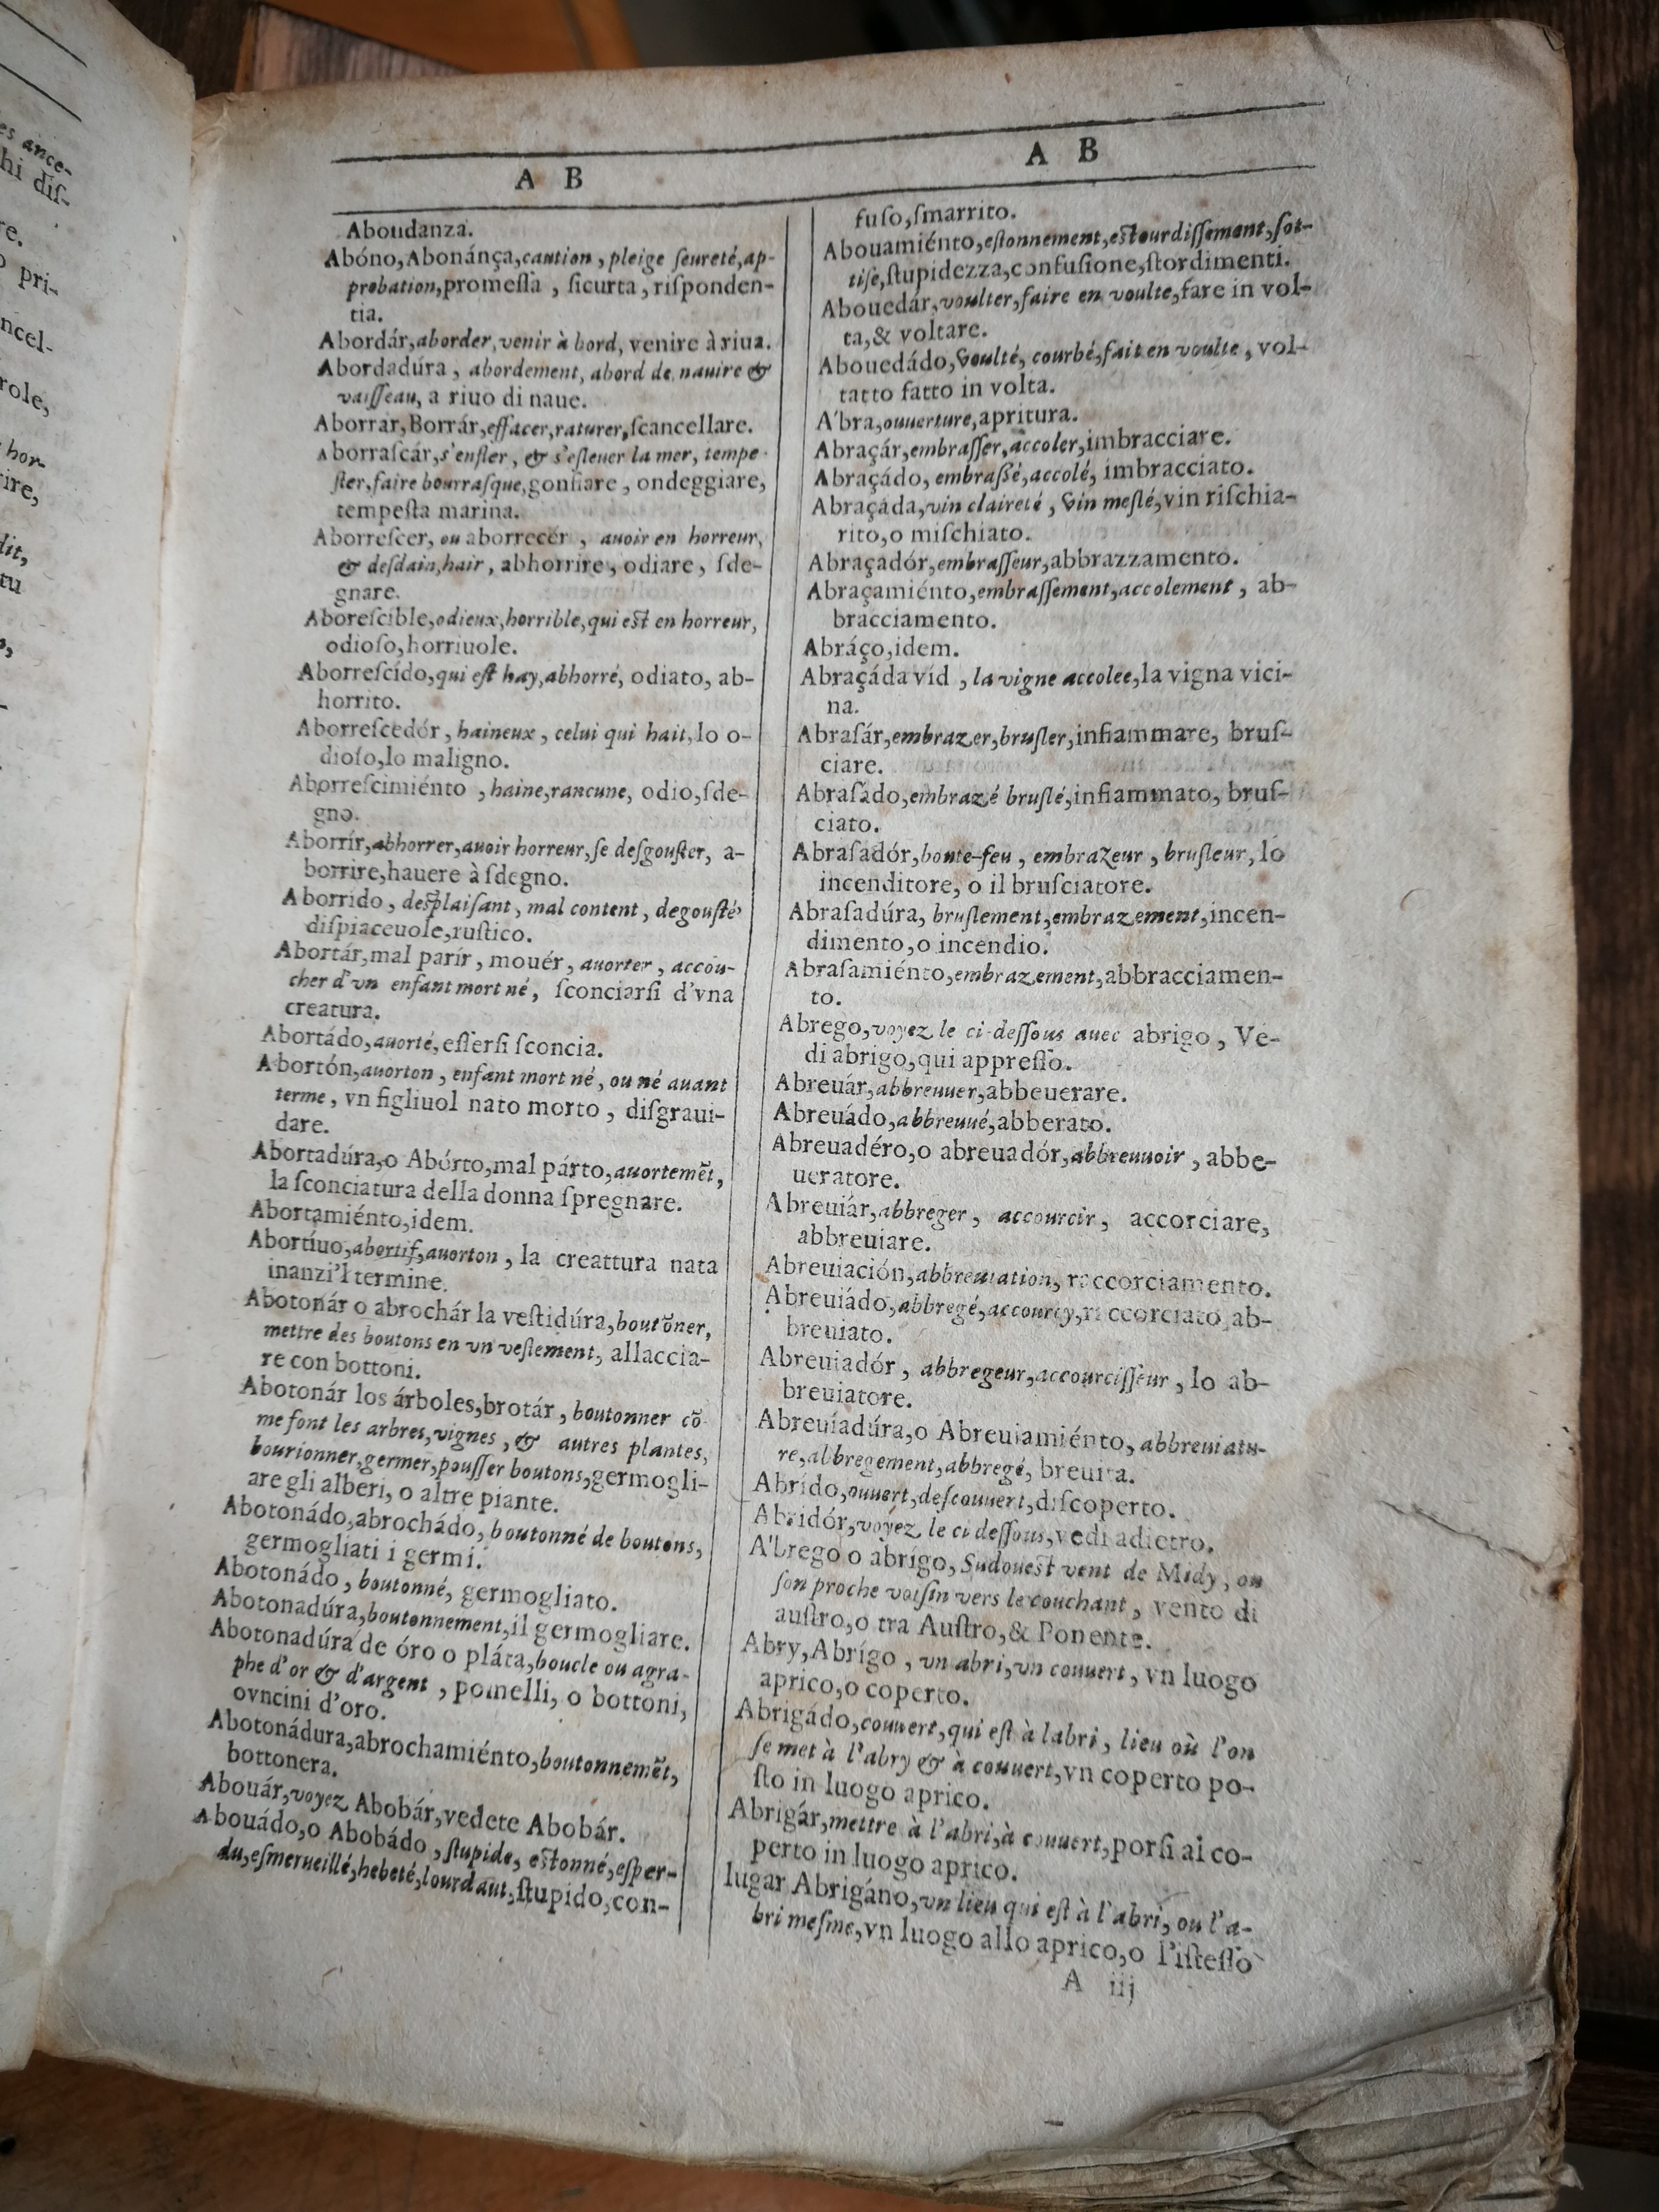 es ance-
hi diſ-
re.
o pri-
ncel-
role,
hor-
ire,
dit,
tu
A B
Aboudanza.
Abóno, Abonánça, caution, pleige ſeureté, ap-
probation, promeſſa, ſicurta, riſponden-
tia.
Abordár, aborder, venir à bord, venire à riua.
Abordadúra, abordement, abord de nauire &
vaiſſeau, a riuo di naue.
Aborrar, Borrár, effacer, raturer, ſcancellare.
Aborraſcár, s'enfler, & s'eſleuer la mer, tempe-
ſter, faire bourraſque, gonfiare, ondeggiare,
tempeſta marina.
Aborreſcer, ou aborrecér, auoir en horreur,
& deſdain, hair, abhorrire, odiare, ſde-
gnare.
Aboreſcible, odieux, horrible, qui eſt en horreur,
odioſo, horriuole.
Aborreſcído, qui eſt hay, abhorré, odiato, ab-
horrito.
Aborreſcedór, haineux, celui qui hait, lo o-
dioſo, lo maligno.
Aborreſcimiénto, haine, rancune, odio, ſde-
gno.
Aborrír, abhorrer, auoir horreur, ſe deſgouſter, a-
borrire, hauere à ſdegno.
Aborrido, deſplaiſant, mal content, degouſté,
diſpiaceuole, ruſtico.
Abortár, mal parír, mouér, auorter, accou-
cher d'vn enfant mort né, ſconciarſi d'vna
creatura.
Abortádo, auorté, eſſerſi ſconcia.
Abortón, auorton, enfant mort né, ou né auant
terme, vn figliuol nato morto, diſgraui-
dare.
Abortadúra, o Abórto, mal párto, auortemẽt,
la ſconciatura della donna ſpregnare.
Abortamiénto, idem.
Abortíuo, abortif, auorton, la creattura nata
inanzi'l termine.
Abotonár o abrochár la veſtidúra, boutõner,
mettre des boutons en vn veſtement, allaccia-
re con bottoni.
Abotonár los árboles, brotár, boutonner cõ-
me font les arbres, vignes, & autres plantes,
bourionner, germer, pouſſer boutons, germogli-
are gli alberi, o altre piante.
Abotonádo, abrochádo, boutonné de boutons,
germogliati i germi.
Abotonádo, boutonné, germogliato.
Abotonadúra, boutonnement, il germogliare.
Abotonadúra de óro o pláta, boucle ou agra-
phe d'or & d'argent, pomelli, o bottoni,
ovncini d'oro.
Abotonádura, abrochamiénto, boutonnemẽt,
bottonera.
Abouár, voyez Abobár, vedete Abobár.
Abouádo, o Abobádo, ſtupide, eſtonné, eſper-
du, eſmerueillé, hebeté, lourdaut, ſtupido, con-
A B
fuſo, ſmarrito.
Abouamiénto, eſtonnement, eſtourdiſſement, ſot-
tiſe, ſtupidezza, confuſione, ſtordimenti.
Abouedár, voulter, faire en voulte, fare in vol-
ta, & voltare.
Abouedádo, voulté, courbé, fait en voulte, vol-
tatto fatto in volta.
A'bra, ouuerture, apritura.
Abraçár, embraſſer, accoler, imbracciare.
Abraçádo, embraßé, accolé, imbracciato.
Abraçáda, vin claireté, vin meſlé, vin riſchia-
rito, o miſchiato.
Abraçadór, embraſſeur, abbrazzamento.
Abraçamiénto, embraſſement, accolement, ab-
bracciamento.
Abráço, idem.
Abraçáda vid, la vigne accolee, la vigna vici-
na.
Abraſár, embrazer, bruſler, infiammare, bruſ-
ciare.
Abraſádo, embrazé bruſlé, infiammato, bruſ-
ciato.
Abraſadór, boute-feu, embrazeur, bruſleur, lo
incenditore, o il bruſciatore.
Abraſadúra, bruſlement, embrazement, incen-
dimento, o incendio.
Abraſamiénto, embrazement, abbracciamen-
to.
Abrego, voyez le ci-deſſous auec abrigo, Ve-
di abrigo, qui appreſſo.
Abreuár, abbreuuer, abbeuerare.
Abreuádo, abbreuué, abberato.
Abreuadéro, o abreuadór, abbreuuoir, abbe-
ueratore.
Abreuiár, abbreger, accourcir, accorciare,
abbreuiare.
Abreuiación, abbreuiation, raccorciamento.
Abreuiádo, abbregé, accourcy, raccorciato, ab-
breuiato.
Abreuiadór, abbregeur, accourciſſeur, lo ab-
breuiatore.
Abreuíadúra, o Abreuiamiénto, abbreuiatu-
re, abbregement, abbregé, breuita.
Abrído, ouuert, deſcouuert, diſcoperto.
Abridór, voyez le ci deſſous, vedi adietro.
A'brego o abrígo, Sudoueſt vent de Midy, ou
ſon proche voiſin vers le couchant, vento di
auſtro, o tra Auſtro, & Ponente.
Abry, Abrígo, vn abri, vn couuert, vn luogo
aprico, o coperto.
Abrigádo, couuert, qui eſt à labri, lieu où l'on
ſe met à l'abry & à couuert, vn coperto po-
ſto in luogo aprico.
Abrigár, mettre à l'abri, à couuert, porſi al co-
perto in luogo aprico.
lugar Abrigáno, vn lieu qui eſt à l'abri, ou l'a-
bri meſme, vn luogo allo aprico, o l'iſteſſo
A iij